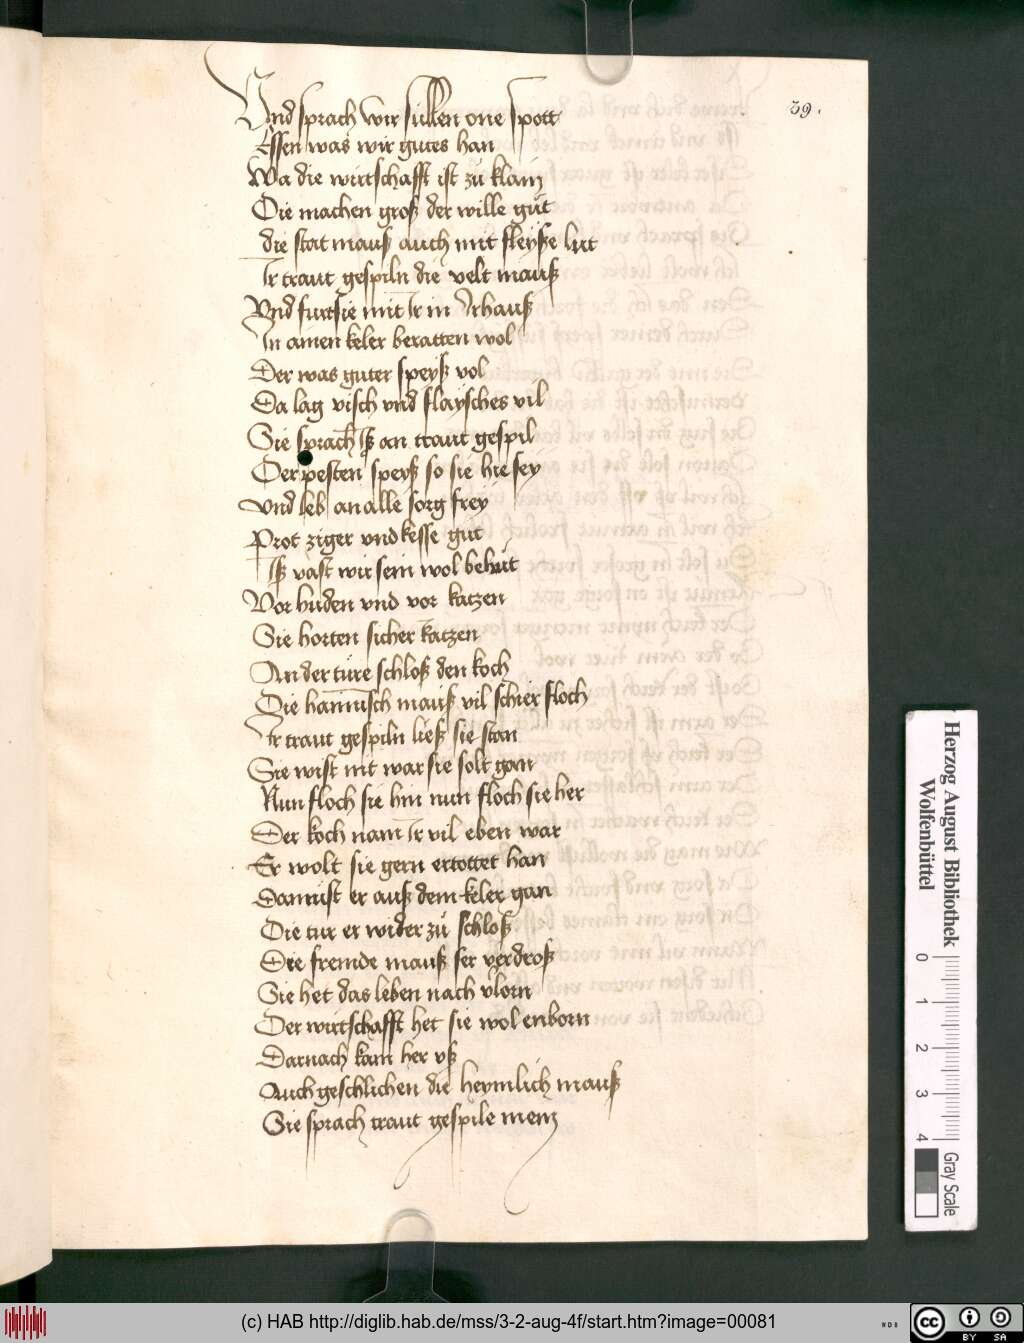 39.
Vnd sprach wir süllen one spott
Essen was wir gutes han
Wa die wirtschafft ist zü klain
Die machen groß der wille güt
die stat mauß auch mit fleyße lut
Ir traut gespiln die velt mauß
Vnd furt sie mit Ir in Ir hauß
In ainen keler beratten wol
Der was guter speyß vol
Da lag visch vnd flaysches vil
Sie sprach Iß an traut gespil
Der pesten speyß so sie hie sey
Vnd leb an alle sorg frey
Prot ziger vnd kesse güt
Iß vast wir sein wol behüt
Vor huden vnd vor katzen
Sie horten sicher katzen
An der türe schloß den koch
Die hamisch mauß vil schier floch
Ir traut gespiln ließ sie stan
Sie wist nit war sie solt gan
Nun floch sie hin nun floch sie her
Der koch nam Ir vil eben war
Er wolt sie gern ertottet han
Da müst er auß dem keler gan
Die tur er wider zü schloß
Die fremde mauß ser verdroß
Sie het das leben nach vlorn
Der wirtschafft het sie wol enborn
Darnach kam her vß
Auch geschlichen die heymlich mauß
Sie sprach traut gespile mein
Herzog August Bibliothek
Wolfenbüttel
0 1 2 3 4
Gray Scale
(c) HAB http://diglib.hab.de/mss/3-2-aug-4f/start.htm?image=00081
WDB
cc BY SA